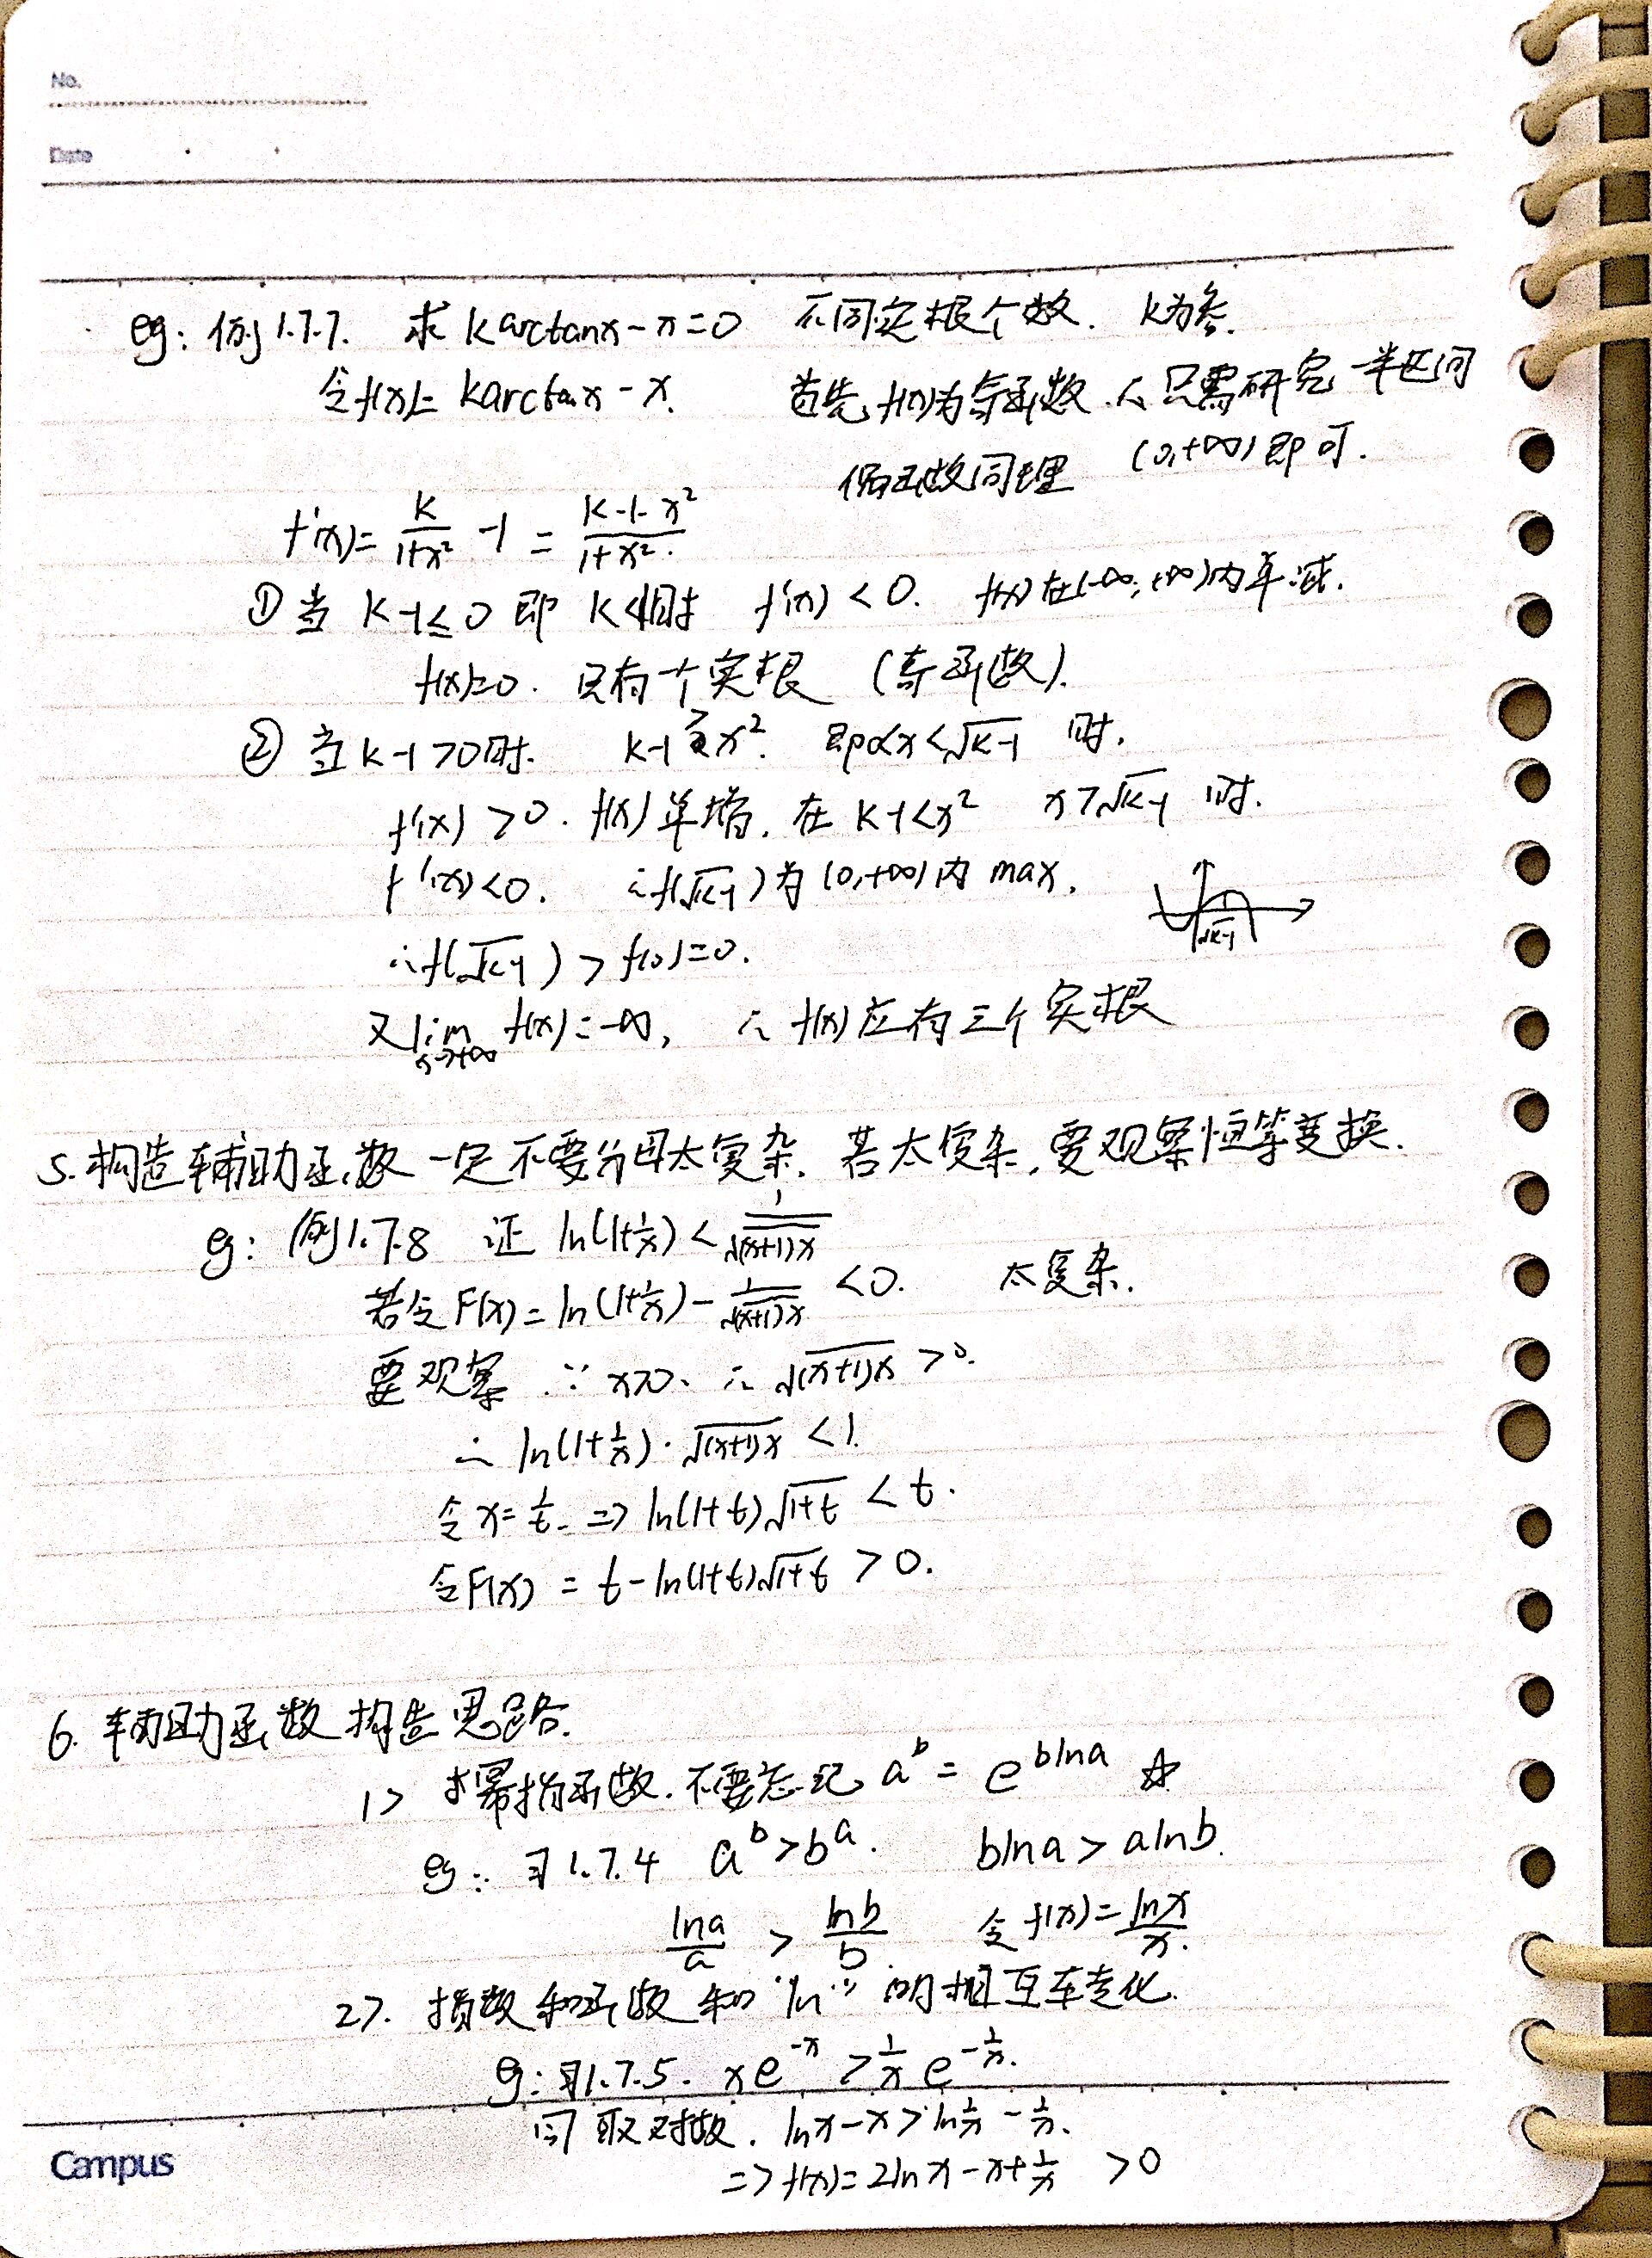 No.
Date
eg: 例1.7.7. 求 k arctanx - x = 0 不同实根个数. k为参.
令f(x)= karctanx - x. 首先, f(x)为奇函数 ∴只需研究一半区间
偶函数同理 (0,+∞) 即可.
f'(x)= k/(1+x²) - 1 = (k-1-x²)/(1+x²).
① 当 k-1≤0 即 k≤1时 f'(x) < 0. f(x)在(-∞,+∞)内单减.
f(x)=0. 只有一个实根 (奇函数).
② 当 k-1>0时. k-1>x². 即0<x<√(k-1) 时.
f'(x) >0. f(x)单增. 在 k-1<x² x>√(k-1) 时.
f'(x)<0. ∴f(√(k-1))为(0,+∞)内 max.
√(k-1)
∴f(√(k-1)) > f(0)=0.
又lim x→+∞ f(x)=-∞, ∴ f(x)应有三个实根
5. 构造辅助函数一定不要分母太复杂. 若太复杂, 要观察恒等变换.
eg: 例1.7.8 证 ln(1+1/x) < 1/√((x+1)x)
若令F(x)= ln(1+1/x) - 1/√((x+1)x) <0. 太复杂.
要观察 ∵ x>0. ∴ √((x+1)x) >0.
∴ ln(1+1/x)·√((x+1)x) <1.
令x=1/t. => ln(1+t)√(1+t) < t.
令F(x) = t-ln(1+t)√(1+t) > 0.
6. 辅助函数构造思路.
1> 求幂指函数. 不要忘记 a^b = e^(blna) ☆
eg: 习1.7.4 a^b>b^a. blna > alnb.
lna/a > lnb/b 令f(x)=lnx/x.
2>. 指数和函数和"ln"的相互转化.
eg: 习1.7.5. xe^(-x) > 1/x e^(-1/x).
同取对数. lnx-x>ln1/x - 1/x.
=> f(x)=2lnx-x+1/x >0
Campus